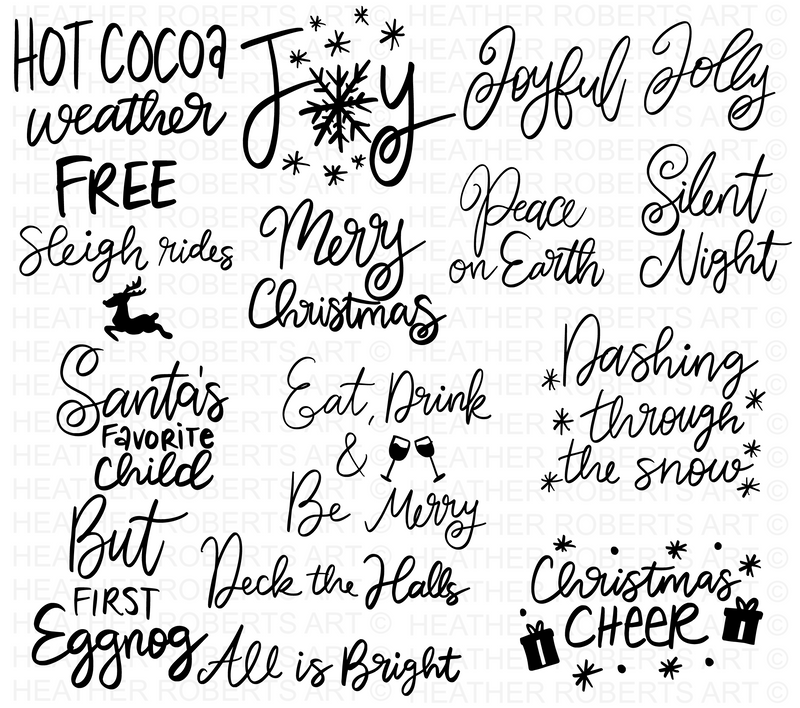 HOT COCOA
weather
FREE
Sleigh rides
Santa's
FAVORITE
child
But
FIRST
Eggnog
Joy
Merry
Christmas
Eat, Drink
&
Be Merry
Deck the Halls
All is Bright
Joyful
Jolly
Peace
on Earth
Silent
Night
Dashing
through
the snow
Christmas
CHEER
HEATHER ROBERTS ART ©